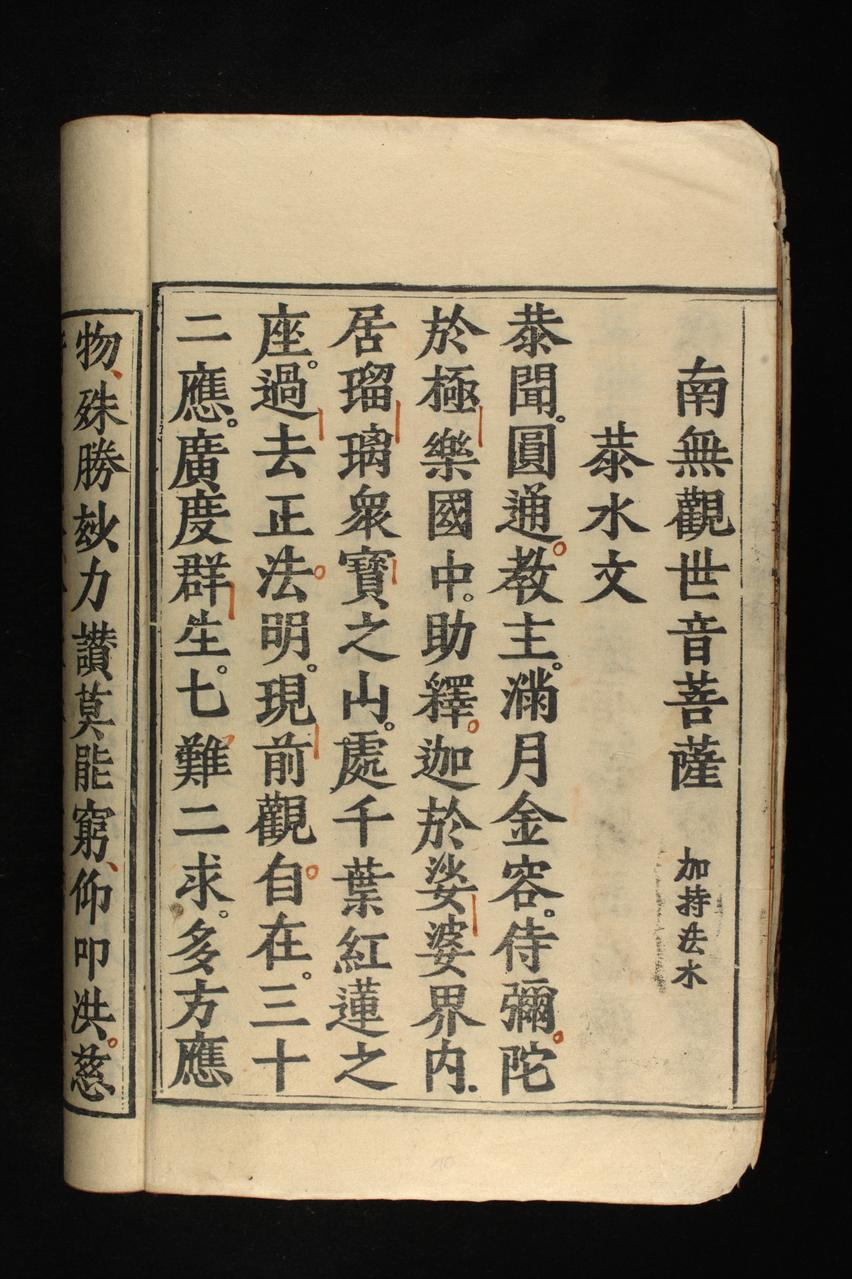 南無觀世音菩薩 加持法水
恭水文
恭聞。圓通教主。滿月金容。侍彌陀
於極樂國中。助釋迦於娑婆界内.
居瑠璃衆寶之山。處千葉紅蓮之
座。過去正法明。現前觀自在。三十
二應。廣度群生。七難二求。多方應
物、殊勝妙力讃莫能窮、仰叩洪慈